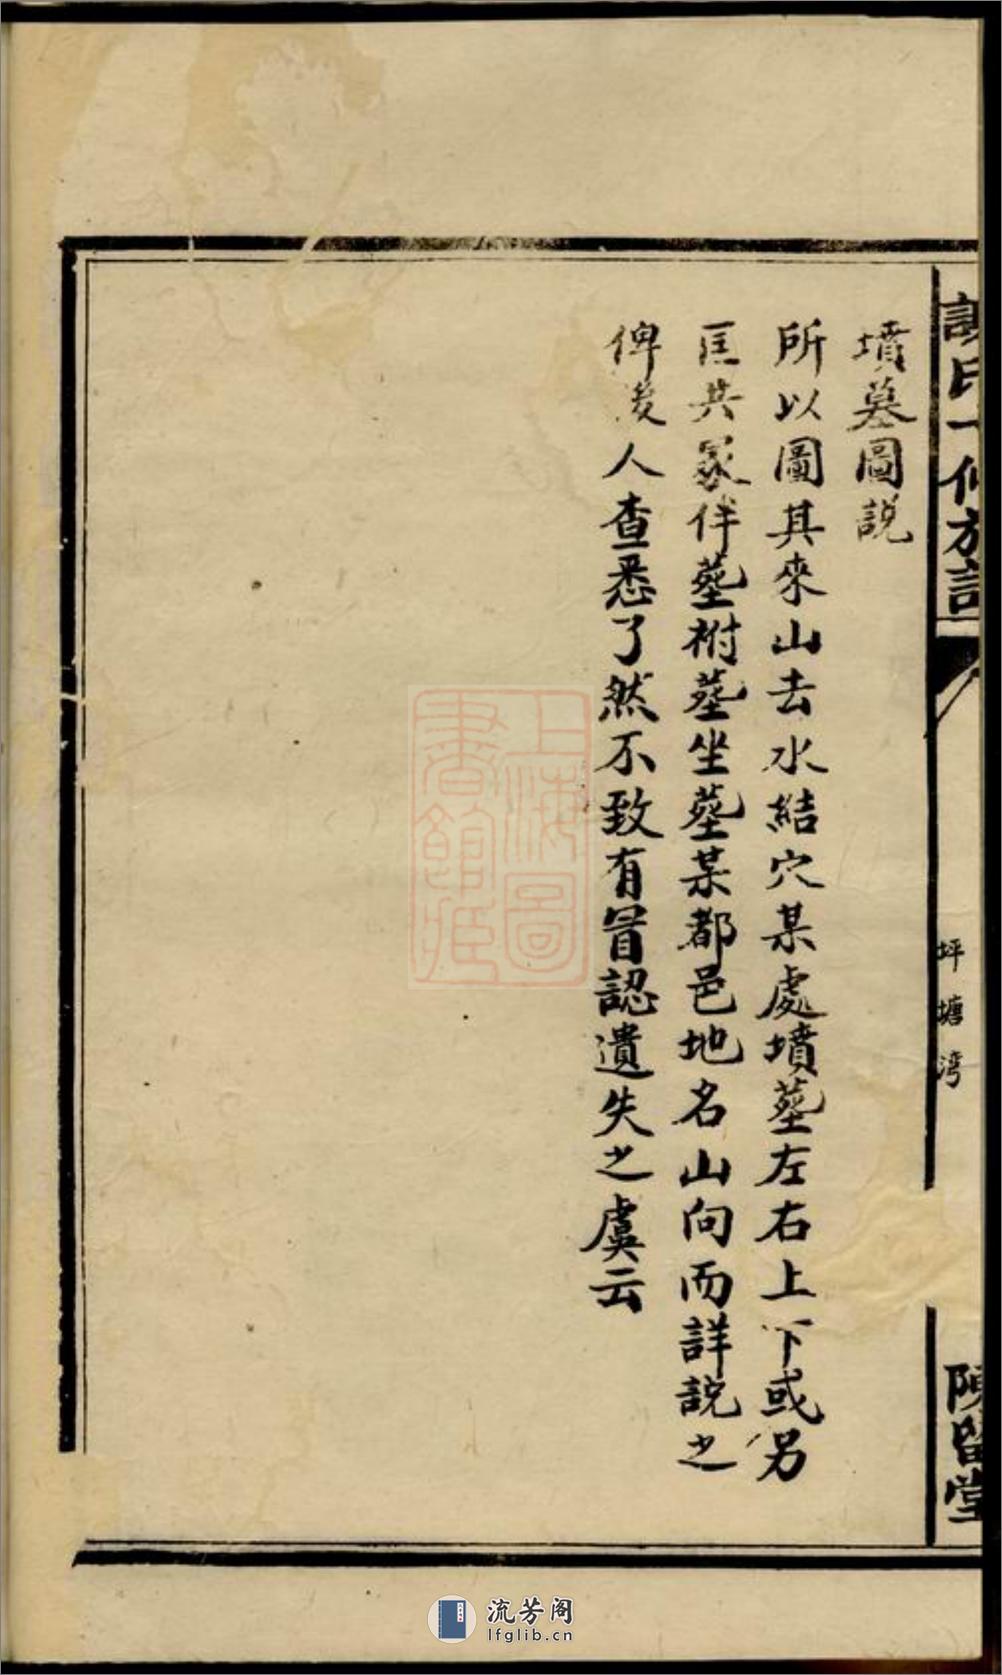 墳墓圖説
所以圖其來山去水結穴某處墳塟左右上下或另
匡共冢伴塟祔塟坐塟某都邑地名山向而詳説之
俾後人查悉了然不致有冒認遺失之虞云
氏
修族譜
坪塘湾
陳留堂
上海圖
書館藏
流芳阁
lfglib.cn